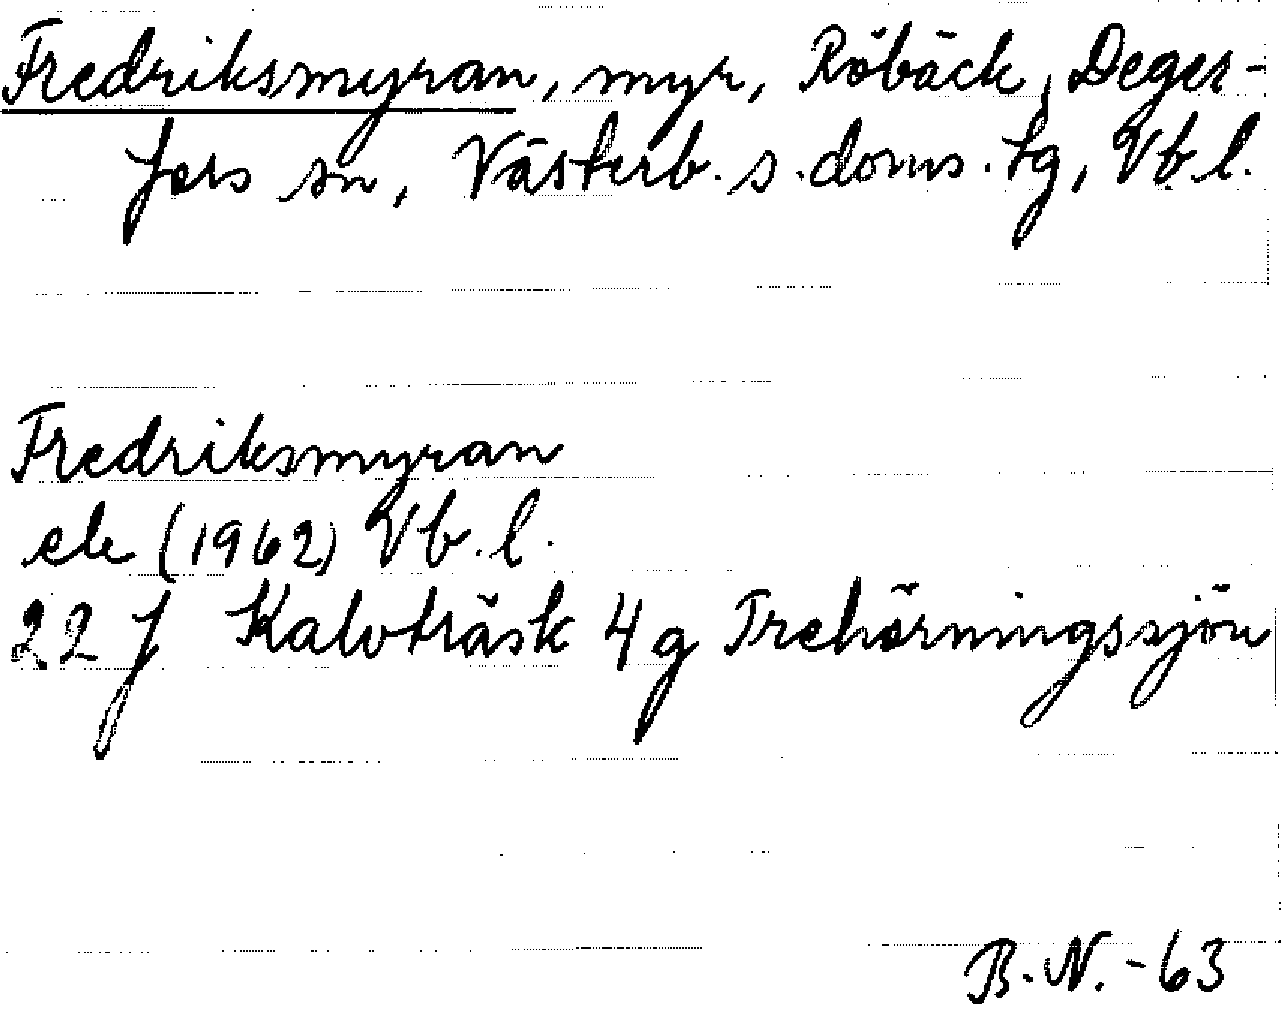 Fredriksmyran, myr, Röbäck, Deger-
fors sn, Västerb. s. doms. tg, Vb. l.
Fredriksmyran
ek (1962) Vb. l.
22 J Kalvträsk 4 g Trehörningssjön
B.N. -63